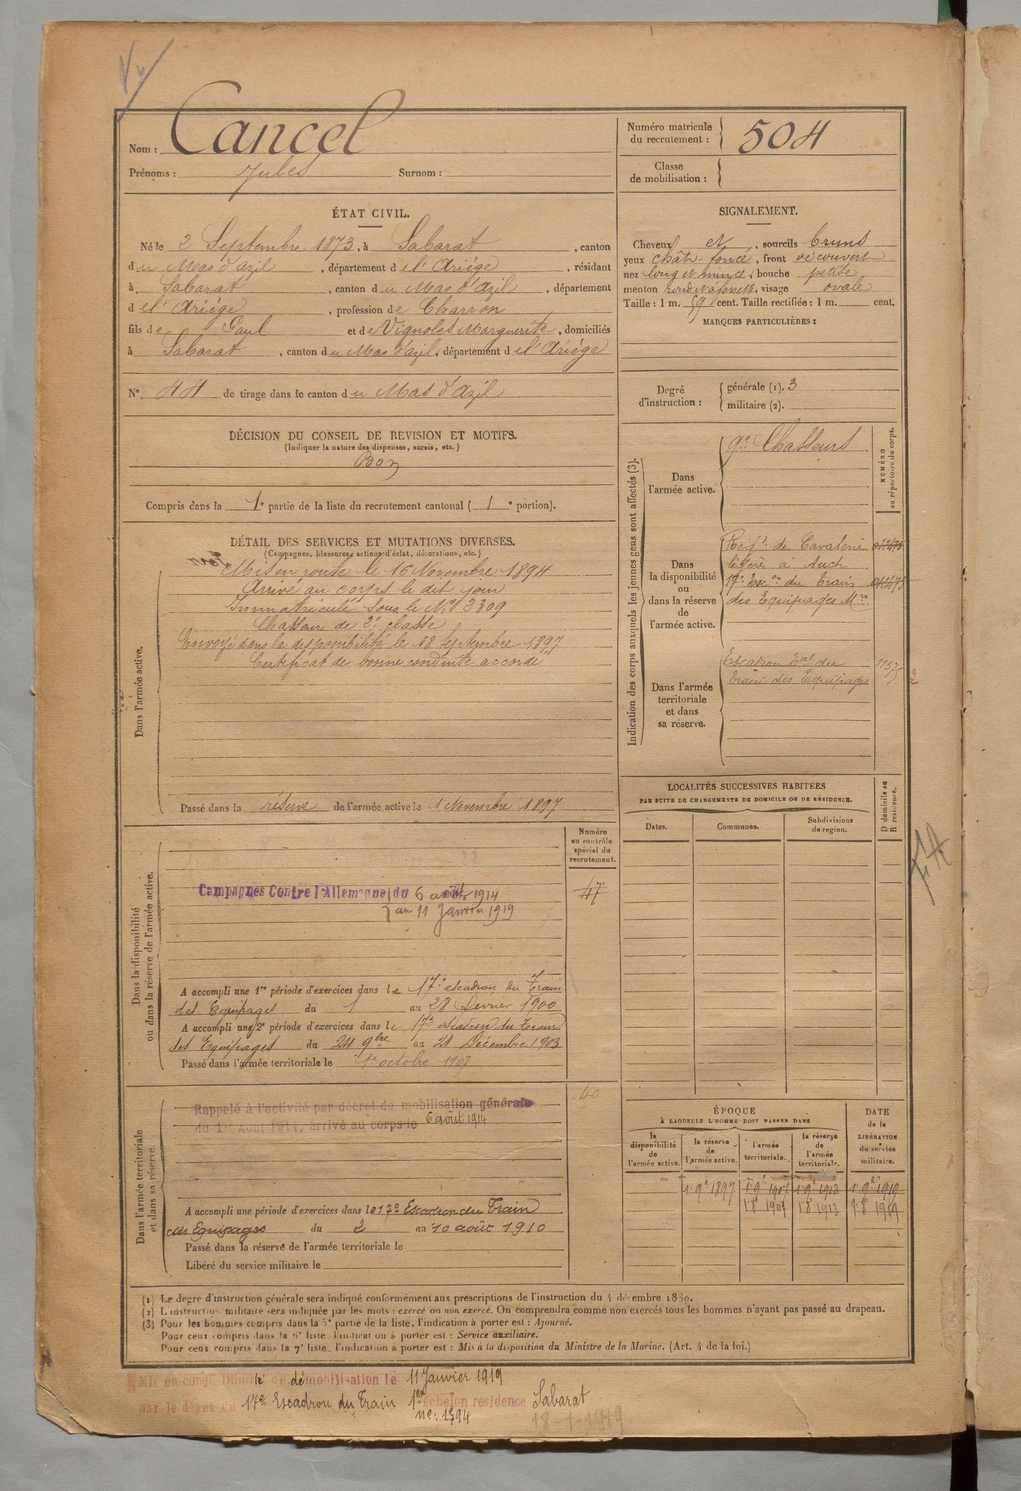 Nom : Cancel
Prénoms : Jules Surnom :
Numéro matricule du recrutement : 504
Classe de mobilisation :
ÉTAT CIVIL.
Né le 2 Septembre 1873, à Sabarat, canton
du Mas d'azil, département de l'Ariége, résidant
à Sabarat, canton du Mas d'Azil, département
de l'Ariége, profession de Charron
fils de Paul et de Vignoles Marguerite, domiciliés
à Sabarat, canton du Mas d'azil, département de l'Ariége
N° 44 de tirage dans le canton du Mas d'Azil
DÉCISION DU CONSEIL DE REVISION ET MOTIFS.
(Indiquer la nature des dispenses, sursis, etc.)
Bon
Compris dans la 1e partie de la liste du recrutement cantonal (1e portion).
SIGNALEMENT.
Cheveux et, sourcils bruns
yeux chât. foncé, front découvert
nez long et mince, bouche petite
menton rond à fossette, visage ovale
Taille : 1 m. 59 cent. Taille rectifiée : 1 m. cent.
MARQUES PARTICULIÈRES :
Degré d'instruction : générale (1). 3
militaire (2).
DÉTAIL DES SERVICES ET MUTATIONS DIVERSES.
(Campagnes, blessures, actions d'éclat, décorations, etc.)
Dans l'armée active.
Mis en route le 16 Novembre 1894
Arrivé au corps le dit jour
Immatriculé sous le N° 2309
Chasseur de 2e classe
Envoyé dans la disponibilité le 18 Septembre 1897
Certificat de bonne conduite accordé
Passé dans la réserve de l'armée active le 1 Novembre 1897
Indication des corps auxquels les jeunes gens sont affectés (3).
NUMÉRO au répertoire du corps.
Dans l'armée active.
9e Chasseurs
Dans la disponibilité ou dans la réserve de l'armée active.
Régt. de Cavalerie
légère à Auch
17e Esc. du Train
des Equipages Mres
Dans l'armée territoriale et dans sa réserve.
Escadron Tal du
train des Equipages
1157
2
LOCALITÉS SUCCESSIVES HABITÉES
PAR SUITE DE CHANGEMENTS DE DOMICILE OU DE RÉSIDENCE.
Dates. Communes. Subdivisions de region. D domicile ou R résidence.
Numéro au contrôle spécial du recrutement.
Dans la disponibilité ou dans la réserve de l'armée active.
Campagnes Contre l'Allemagne du 6 août 1914
au 11 Janvier 1919
47
A accompli une 1re période d'exercices dans le 17e escadron du Train
des Equipages du 1 au 28 février 1900
A accompli une 2e période d'exercices dans le 17e escadron du Train
des Equipages du 24 9bre au 21 Décembre 1903
Passé dans l'armée territoriale le 1er octobre 1907
Dans l'armée territoriale et dans sa réserve.
60
Rappelé à l'activité par décret de mobilisation générale
du 1er Août 1914, arrivé au corps le 6 août 1914
A accompli une période d'exercices dans le 17e Escadron du Train
des Equipages du 2 au 10 août 1910
Passé dans la réserve de l'armée territoriale le
Libéré du service militaire le
ÉPOQUE
À LAQUELLE L'HOMME DOIT PASSER DANS
la disponibilité de l'armée active. la réserve de l'armée active. l'armée territoriale. la réserve de l'armée territoriale.
DATE de la LIBÉRATION du service militaire.
1 9e 1897 1 9e 1907 1 9e 1913 1 9e 1919
1 8e 1907 1 8e 1913 1 8e 1919
(1) Le degré d'instruction générale sera indiqué conformément aux prescriptions de l'instruction du 4 décembre 1889.
(2) L'instruction militaire sera indiquée par les mots : exercé ou non exercé. On comprendra comme non exercés tous les hommes n'ayant pas passé au drapeau.
(3) Pour les hommes compris dans la 5e partie de la liste, l'indication à porter est : Ajourné.
Pour ceux compris dans la 6e liste, l'indication à porter est : Service auxiliaire.
Pour ceux compris dans la 7e liste, l'indication à porter est : Mis à la disposition du Ministre de la Marine. (Art. 4 de la loi.)
Mis en congé illimité de démobilisation le 11 Janvier 1919
par le dépôt du 17e Escadron du Train 1er échelon residence Sabarat
no: 1394
18-1-1919